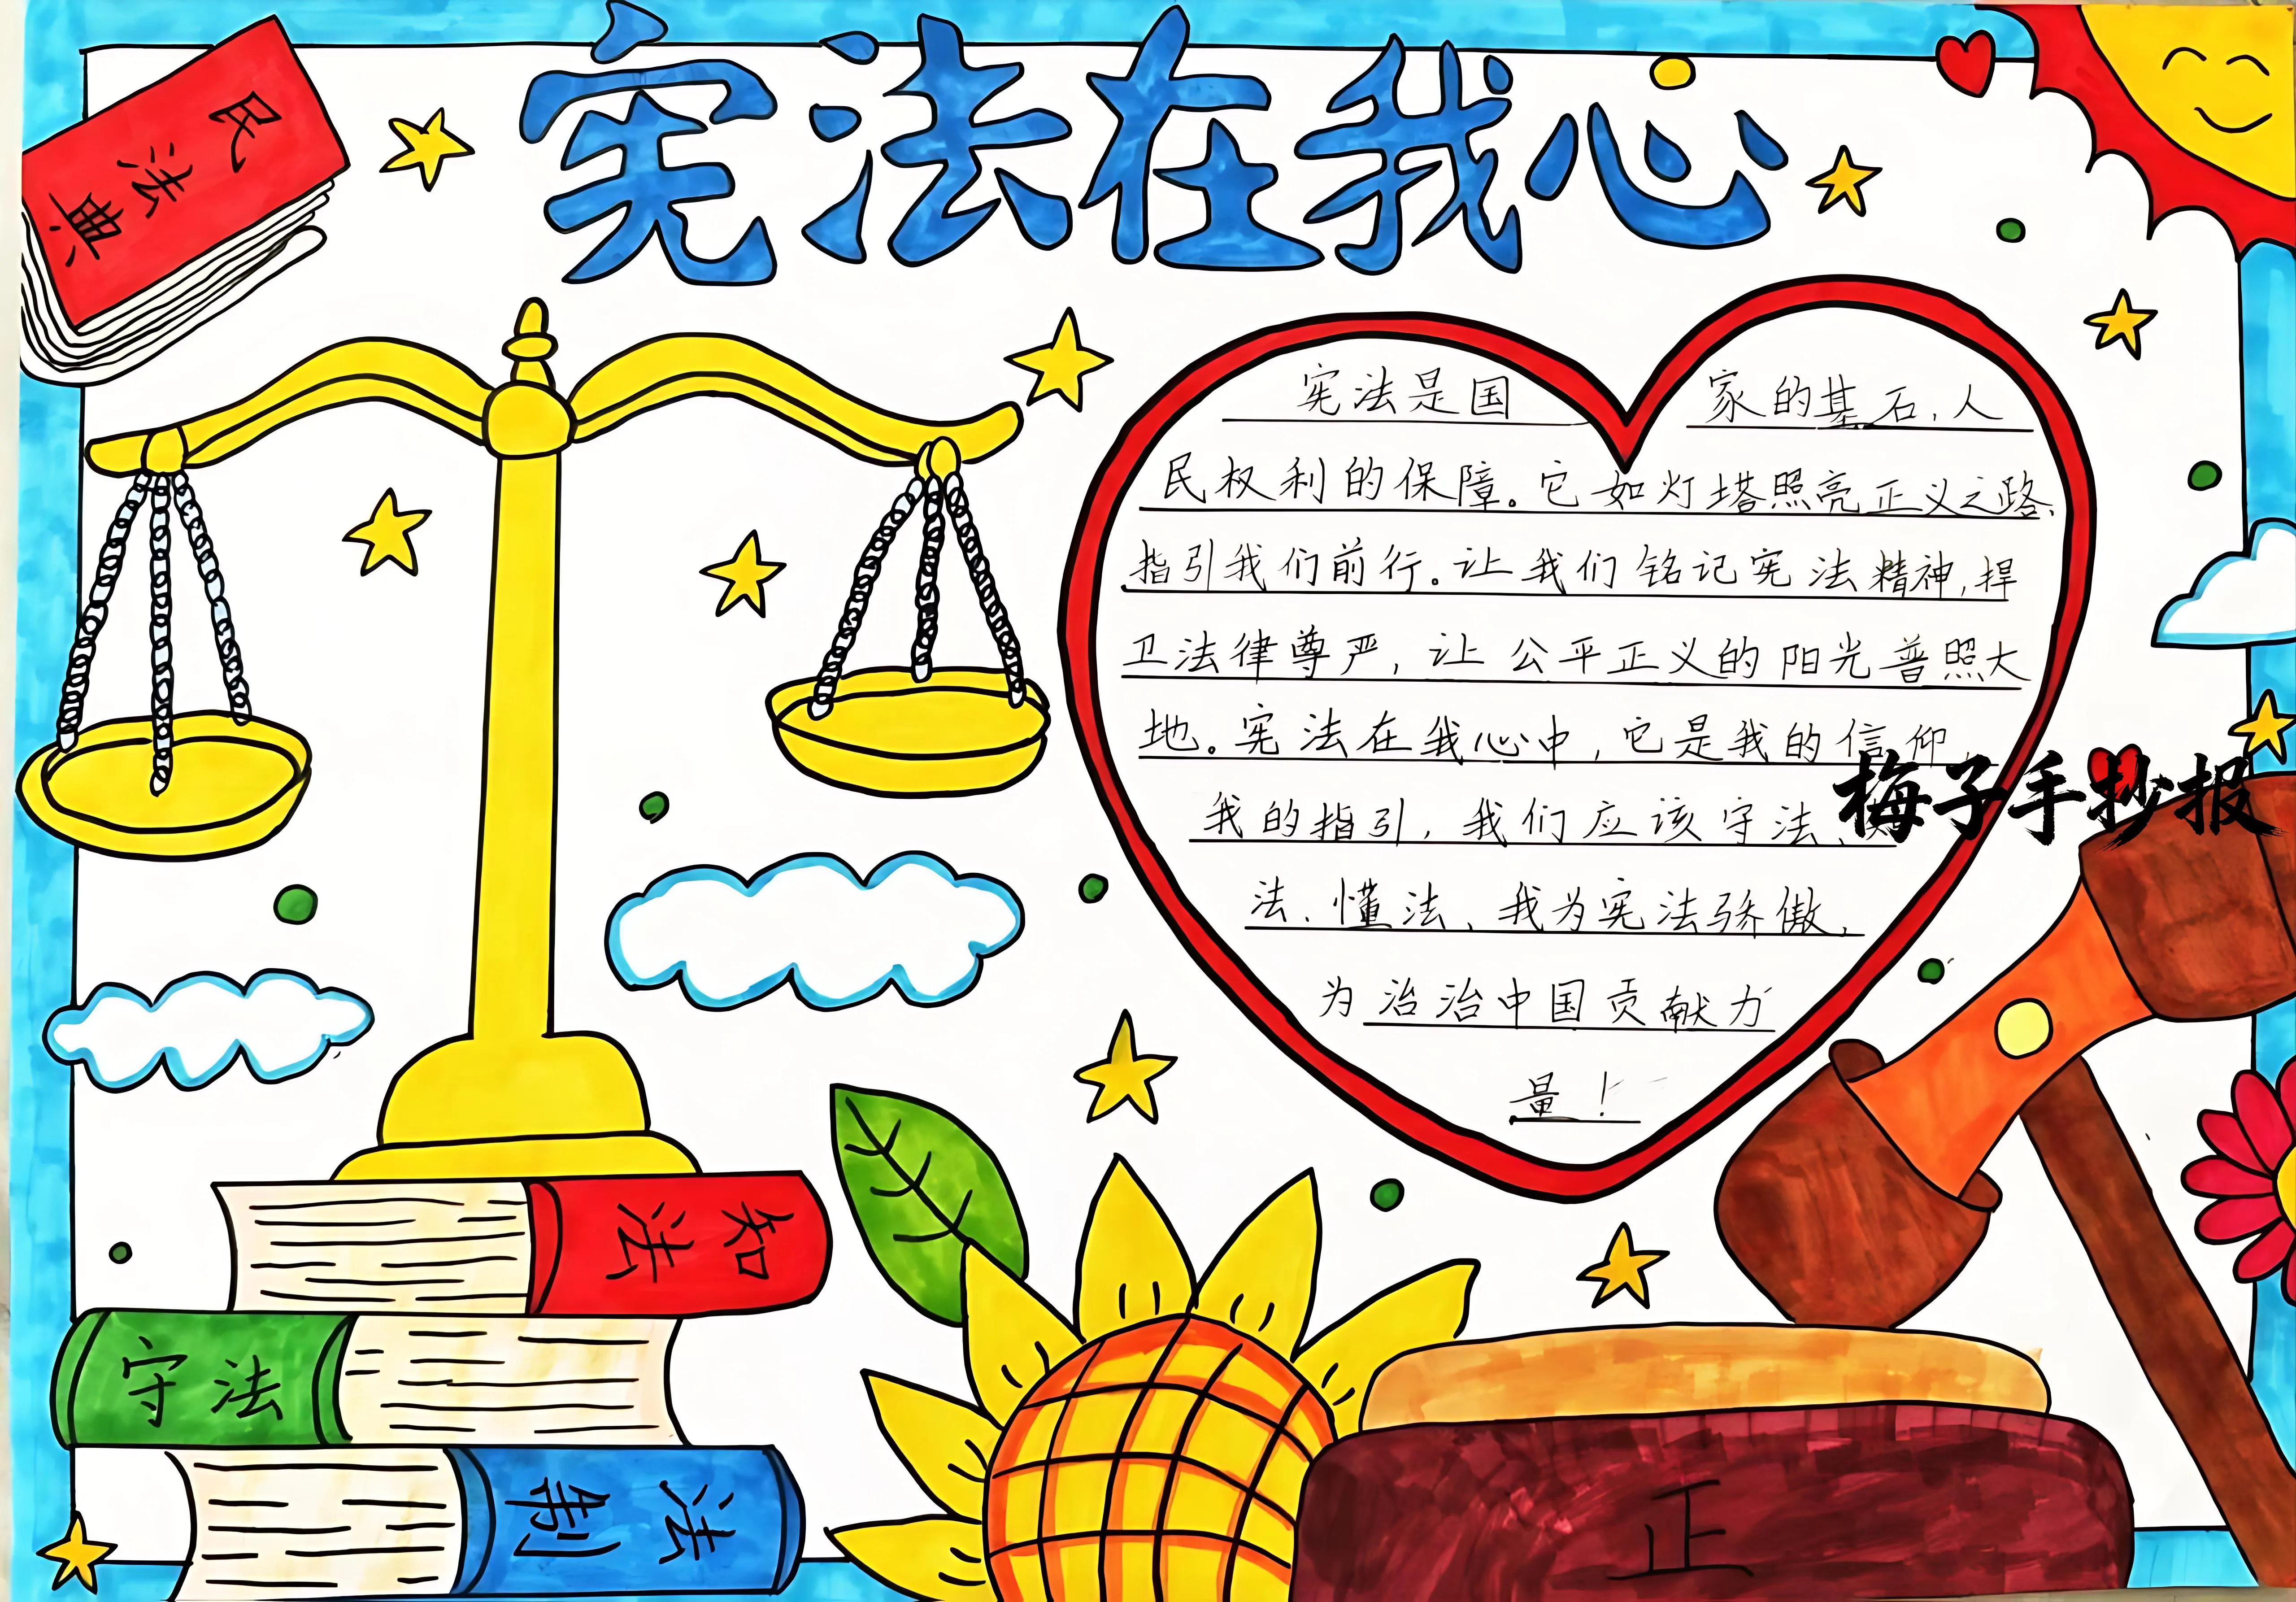 宪法在我心
民法典
宪法是国家的基石,人
民权利的保障。它如灯塔照亮正义之路、
指引我们前行。让我们铭记宪法精神,捍
卫法律尊严,让公平正义的阳光普照大
地。宪法在我心中,它是我的信仰,
我的指引,我们应该守法、
法、懂法、我为宪法骄傲,
为治治中国贡献力
量!
梅子手抄报
知法
守法
法制
正